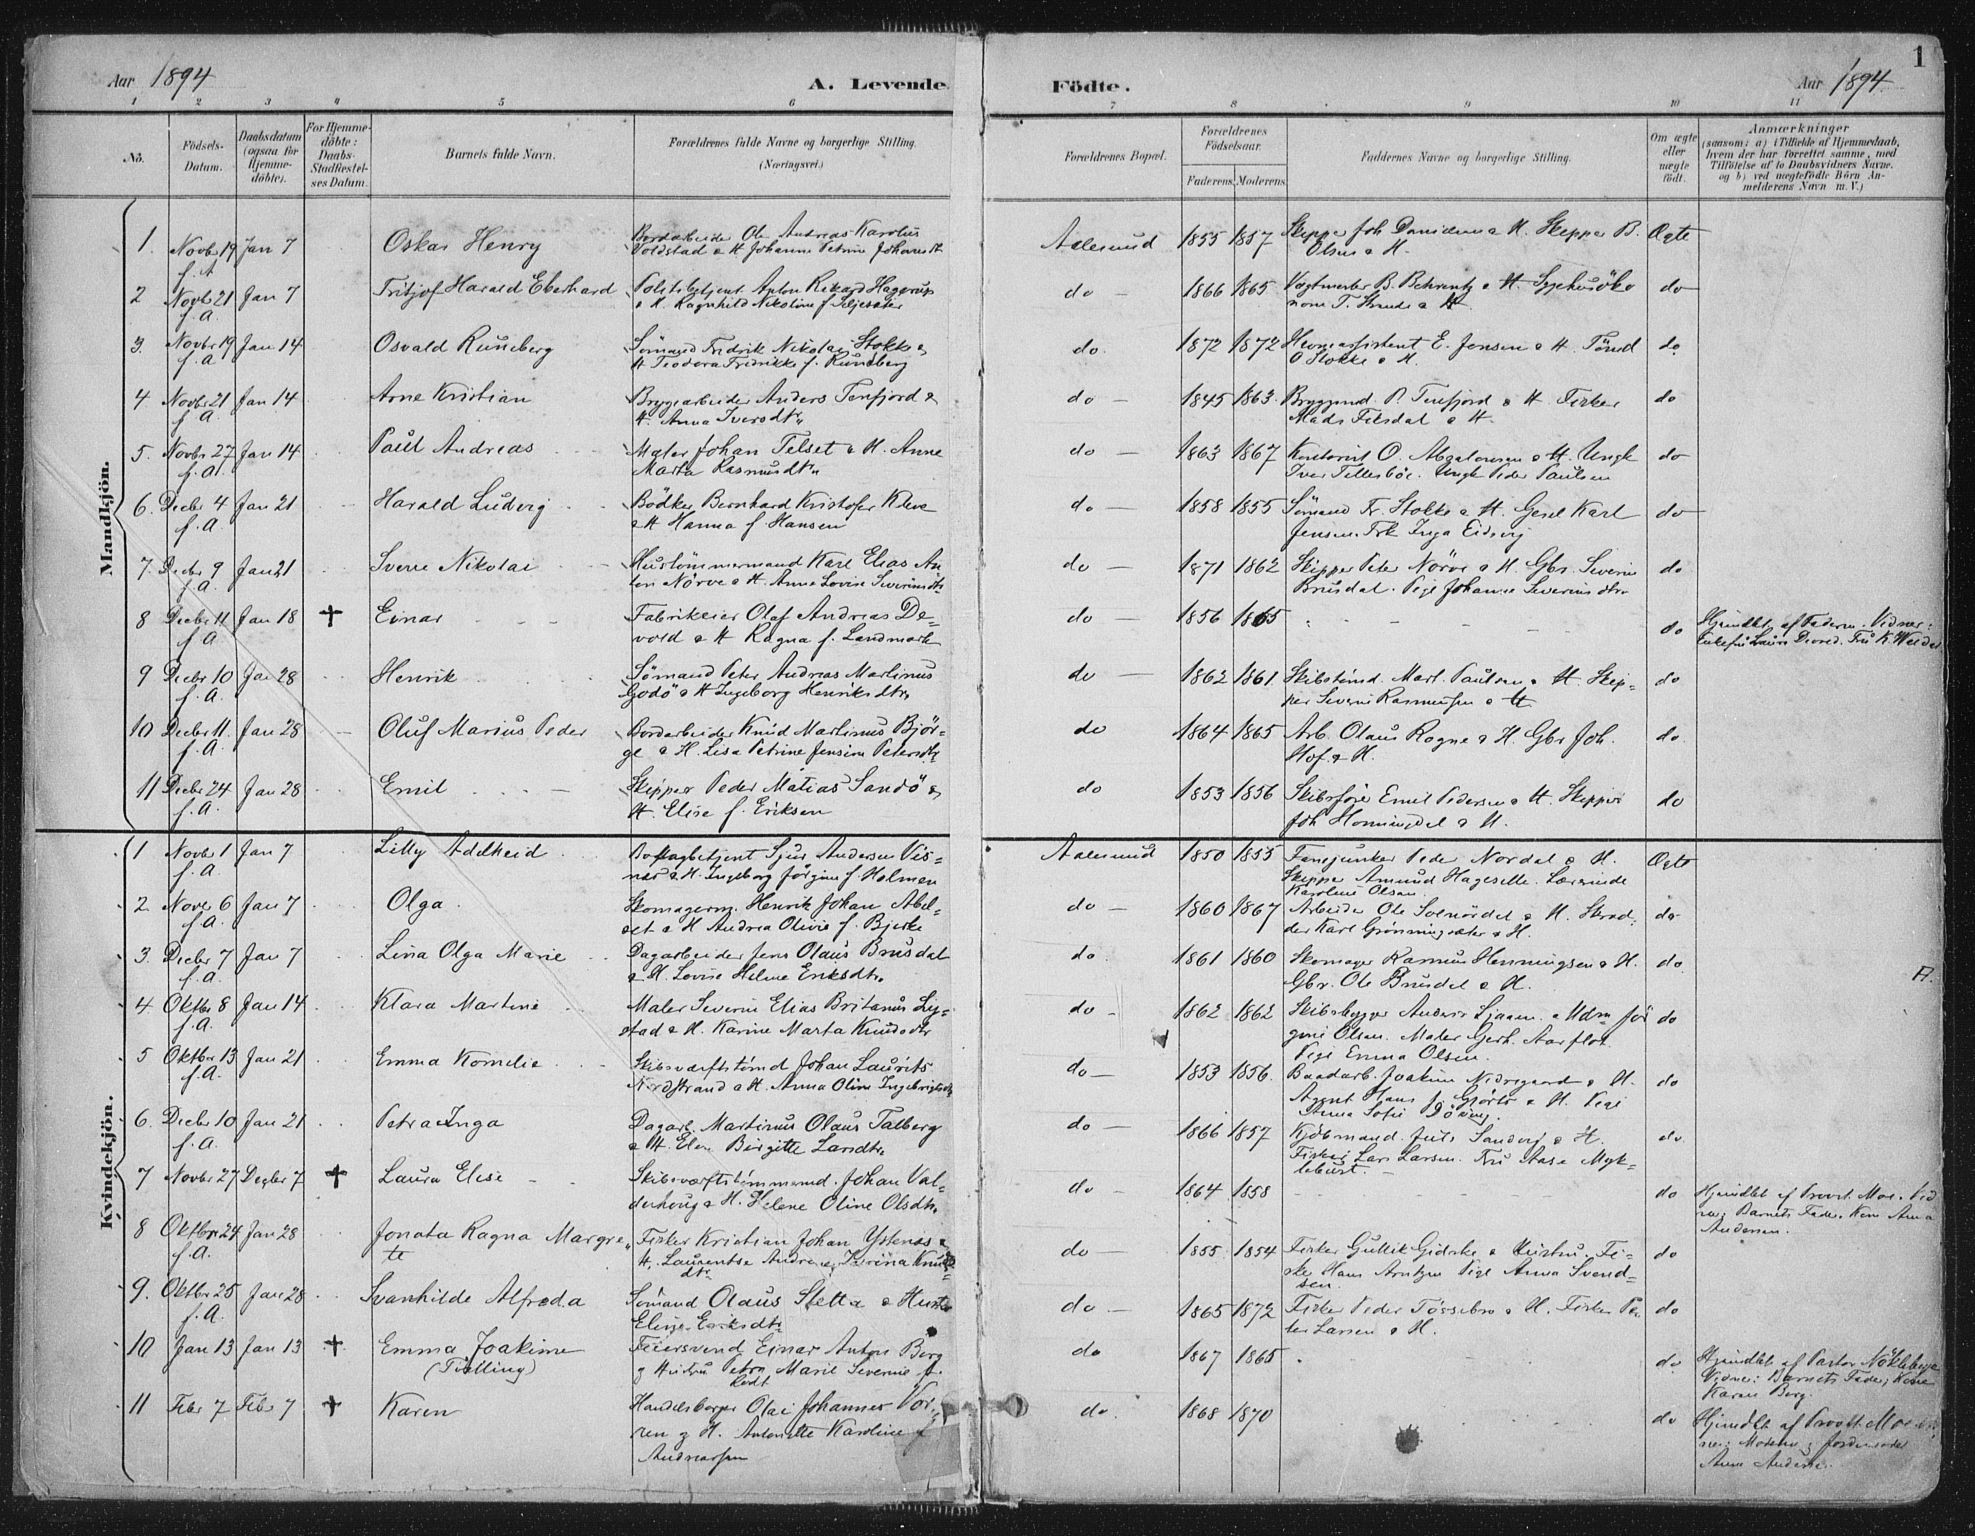 1
Aar 1894
A. Levende
Födte.
Aar 1894.
1 2 3 4 5 6 7 8 9 10 11
No.
Födsels-
Datum.
Daabsdatum
(ogsaa for
Hjemme-
döbte).
For Hjemme-
döbte:
Daabs-
Stadfæstel-
ses Datum.
Barnets fulde Navn.
Forældrenes fulde Navne og borgerlige Stilling.
(Næringsvei.)
Forældrenes Bopæl.
Forældrenes
Födselsaar.
Faderens. Moderens.
Faddernes Navne og borgerlige Stilling.
Om ægte
eller
uægte
födt.
Anmærkninger
(saasom: a) i Tilfælde af Hjemmedaab,
hvem der har forrettet samme, med
Tilföielse af to Daabsvidners Navne.
og b) ved uægtefödte Börn An-
melderens Navn m. V.)
Mandkjön.
1. Novbr 19 Jan 7 Oskar Henry Bordarbeider Ole Andreas Karolius Aalesund 1855 1857 Skipper Joh Danielsen & H. Skipper B. Ægte
f. A Voldstad & H Johanne Petrine Johansdt. Olsen & H.
2 Novbr 21 Jan 7 Fritjof Harald Eberhard Politibetjent Anton Rikard Hagerup do 1866 1865 Vagtmester B. Behrentz & H do
f. A. & H. Ragnhild Nikoline f.
3. Novbr 19 Jan 14 Osvald Runeberg Sömand Fredrik Nikolai Stokke & do. 1872 1872 E. Jensen & H. do.
f. A H Teodora Fredrikke f. Runeberg O Stokke & H.
4 Novbr 21 Jan 14 Arne Kristian Bryggearbeider Anders Tenfjord & do 1845 1863. Bryggemd. P. Tenfjord & H Fisker do
f. A. H. Anna Iversdtr. Mads & H.
5. Novbr 27 Jan 14 Paul Andreas Maler Johan Telset & H. Anne do 1863 1867 Kontorist O. Absalonsen & H. Ungk do
f. A. Marta Rasmusdtr. Iver Ungk Peder Paulsen
6. Decbr 4 Jan 21 Harald Ludvig Bödker Bernhard Kristofer Kleve do 1858 1855 Sömand Fr. Stokke & H. Karl do
f. A. & H Hanna f Hansen Jensen. Frk Inga Eidsvig
7. Decbr 9 Jan 21 Sverre Nikolai Hustömmermand Karl Elias An do 1871 1862 Skipper Peter Nörve & H. Gbr. Severin do
f. A. ton Nörve & H. Anne Lovise Severinsdtr Brusdal. Pige Johanne Severinsdtr.
8 Decbr 11 Jan 18 † Einar Fabrikeier Olaf Andreas De- do 1856 1865 do Hjemdbt. af Faderen. Vidner:
f A vold & H Ragna f. Landmark Enkefru Laura Devold. Fru K.
9 Decbr 10 Jan 28 Henrik Sömand Peter Andreas Martinus do 1862 1861. Skibstömd. Mart. Paulsen & H. Skip- do
f. A. Godö & H Ingeborg Henriksdtr. per Severin Rasmussen & H
10 Decbr 11. Jan 28 Oluf Marius Peder Bordarbeider Knud Martinus Björ- do 1864 1865 Arb. Olaus Rogne & H. Gbr Joh. do.
f. A. ge & H. Lisa Petrine Jensine Petersdtr. Hof. & H.
11 Decbr 24 Jan 28 Emil Skipper Peder Matias Sandö & do 1853 1856 Skibsförer Emil Pedersen & H. Skipper do
f. A. H. Elise f. Eriksen Joh Horningdal & H.
Kvindekjön.
1 Novbr 1 Jan 7 Lilly Adelheid Sjur Andersen Vis- Aalesund 1850 1855 Fanejunker Peder Nordal & H. Ægte
f. A nes & H. Ingeborg Jörgine f. Holmen Skipper Amund Hageselle. Lærerinde
Karoline Olsen.
2 Novbr 6 Jan 7 Olga. Skomagerm. Henrik Johan Abel- do 1860 1867 Arbeider Ole Solnördal & H. Skræd- do
f. A. set & H Andrea Olivie f. Bjerke der Karl Grönningsæter & H.
3. Decbr 7 Jan 7 Lina Olga Marie Dagarbeider Jens Olaus Brusdal do. 1861 1860 Skomager Rasmus Henningsen & H. do.
f. A. & H. Lovise Helene Eriksdtr. Gbr. Ole Brusdal & H.
4 Oktbr 8 Jan 14 Klara Martine Maler Severin Elias Britanus Ly- do 1862 1862 Skibsbygger Anders & Mdm Jör do
f. A. stad & H. Karine Marta Knudsdtr gine Olsen. Maler Gert. Aarflot.
Pige Emma Olsen.
5 Oktbr 13 Jan 21 Emma Kornelie Skibsværftstömd Johan Laurits do 1853 1856. Baadarb. Joakim Nedregaard & H. do
f. A. Nordstrand & H. Anna Oline Ingebrigtsdtr Agent Hans J. & H. Pige
Anna Sofie Döving.
6. Decbr 10 Jan 21 Petra Inga Dagarb. Martinus Olaus Talberg do 1866 1857 Kjöbmand. Jets Sandvig & H. do
f. A. & H. Elen Birgitte Larsdtr. Fisker Lars Larsen. Fru Aase Myk-
lebust.
7 Novbr 27 Decbr 7 † Laura Elise Skibsværftstömmermd. Johan Val- do 1864 1858 do Hjemdbt af Provst Moe. Vid
derhaug & H. Helene Oline Olsdtr. ner: Barnets Fader. Kone Anna
Andersen.
8 Oktbr 24 Jan 28 Jonata Ragna Margre Fisker Kristian Johan Ystenæs & do 1855 1854 Fisker Gullik Gidske & Hustru. Fi- do
f. A. te H. Laurentse Andrea Karina Knuds
dtr sker Hans Arntzen Pige Anna Svend-
sen.
9. Oktbr 25 Jan 28 Svanhilde Alfreda Sömand Olaus Sletta & Hustru do 1865 1872 Fisker Peder Tössebro & H. Fisker Pe do
f. A. Eriksdtr ter Larsen & H.
10 Jan 13 Jan 13 † Emma Joakime Feiersvend Einar Anton Berg do 1867 1865 do Hjemdbt af Pastor
(Tvilling) & Hustru Petra Marie Severine f. Vidner: Barnets Fader, Kone
Karen Berg.
11 Febr 7 Febr 7 † Karen Handelsborger Olai Johannes Vor- do. 1868 1870 do Hjemdbt af Provst Moe
ren & H. Antonette Karoline f ner: Moderen & Jordemoder
Andreassen Anne Andersen.